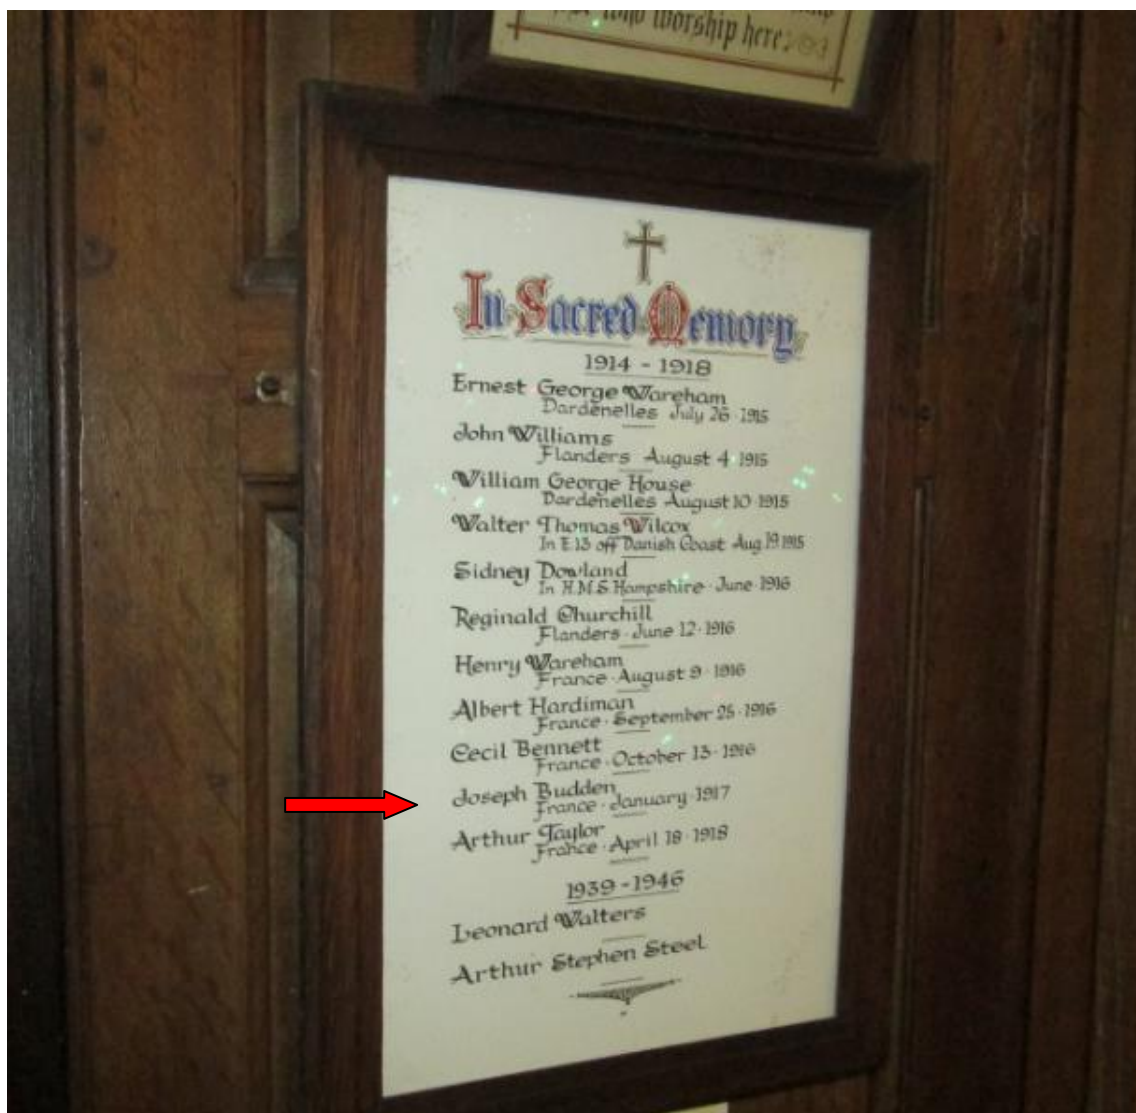 who worship here
In Sacred Memory
1914 - 1918
Ernest George Wareham
Dardenelles July 26 · 1915
John Williams
Flanders August 4 · 1915
William George House
Dardenelles August 10 · 1915
Walter Thomas Wilcox
In E.13 off Danish Coast Aug 19 1915
Sidney Dowland
In H.M.S. Hampshire · June · 1916
Reginald Churchill
Flanders · June 12 · 1916
Henry Wareham
France · August 9 · 1916
Albert Hardiman
France · September 25 · 1916
Cecil Bennett
France · October 13 · 1916
Joseph Budden
France · January · 1917
Arthur Taylor
France · April 18 · 1918
1939 - 1946
Leonard Walters
Arthur Stephen Steel